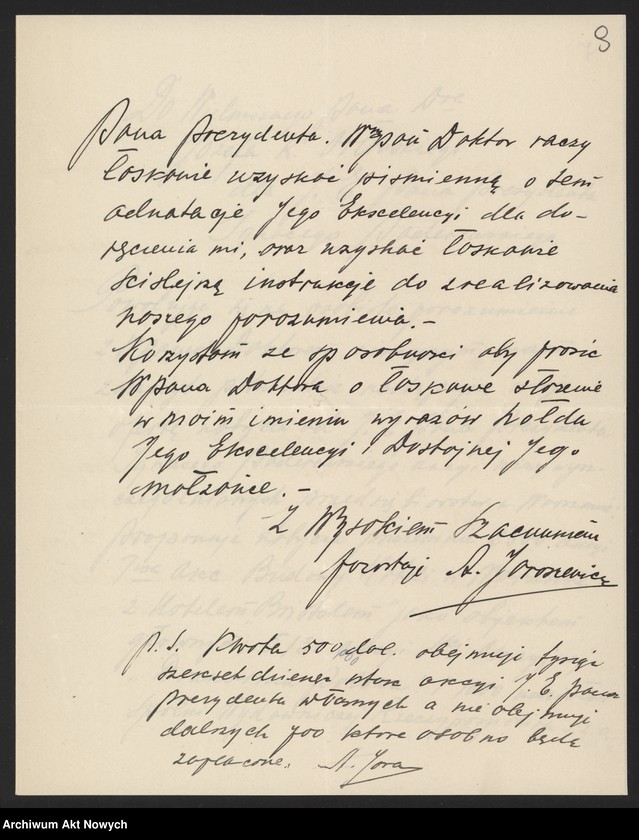 9
Pana Prezydenta. WPan Doktor raczy
łaskawie uzyskać piśmienną o tem
adnotację Jego Ekscelencyi dla do-
ręczenia mi, oraz uzyskać łaskawie
ściślejszą instrukcję do zrealizowania
naszego porozumienia. -
Korzystam ze sposobności aby prosić
WPana Doktora o łaskawe złożenie
w moim imieniu wyrazów hołdu
Jego Ekscelencyi i Dostojnej Jego
małżonce. -
Z Wysokiem Szacunkiem
pozostaję A. Jaroszewicz
P. S. Kwota 500 dol. obejmuje tysiąc
sześćset dziewięć akcyi J. E. Pana
Prezydenta własnych a nie obejmuje
dalszych 400 które osobno będą
zapłacone. A. Jaro
Archiwum Akt Nowych